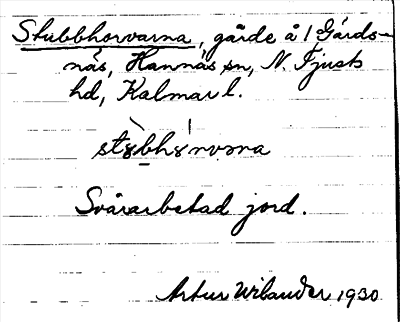 Stubbhorvarna, gärde å 1 Gärds-
näs, Hannäs sn, N. Tjusts
hd, Kalmar l.
Svårarbetad jord.
Artur Wilander 1930